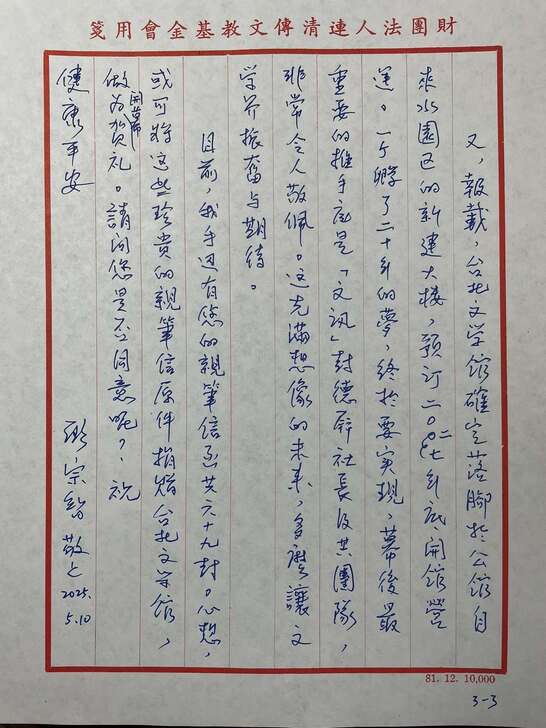 財團法人連清傳文教基金會用箋
又，報載，台北文学館確定落腳於公館自
來水園区的新建大樓，預订二〇二七年底開館營
運。一个孵了二十年的夢，終於要实現，幕後最
重要的推手應是「文訊」封德屏社長及其團隊，
非常令人敬佩。这充滿想像的未来，多麼讓文
学界振奮与期待。
目前，我手边有您的親筆信函共六十九封。心想，
或可将这些珍貴的親筆信原件捐贈台北文学館，
做為開幕賀礼。請问您是否同意呢？祝
健康平安
宗智敬上 2025.5.10
81. 12. 10,000
3-3